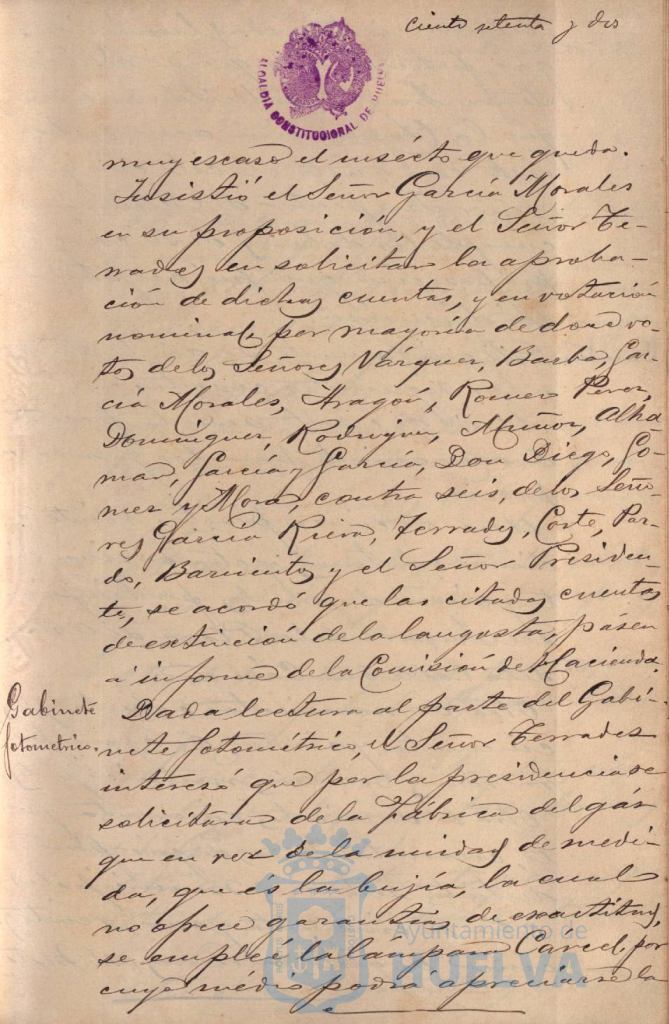 Ciento setenta y dos
ALCALDIA CONSTITUCIONAL DE HUELVA
muy escaso el insécto que queda.
Insistió el Señor García Morales
en su proposición, y el Señor Te-
rrades en solicitar la aproba-
ción de dichas cuentas, y en votación
nominal, por mayoría de doce vo-
tos de los Señores Vázquez, Barba, Gar-
cía Morales, Aragón, Romero Perez,
Dominguez, Rodriguez, Muñoz, Alha-
mar, García y García, Don Diego, Go-
mez y Mora, contra seis, de los Seño-
res García Riera, Terrades, Corte, Par-
do, Barrientos y el Señor Presiden-
te, se acordó que las citadas cuentas
de extinción de la langosta, pásen
á informe de la Comisión de Hacienda.
Gabinete
fotometrico.
Dada lectura al parte del Gabi-
nete fotométrico, el Señor Terrades
interesó que por la presidencia se
solicitara de la Fábrica del gás
que en vez de la unidad de medi-
da, que és la bujía, la cual
no ofrece garantías de exactitud,
se empleé la lámpara Carcel, por
cuyo médio podrá apreciarse la
Ayuntamiento de
HUELVA